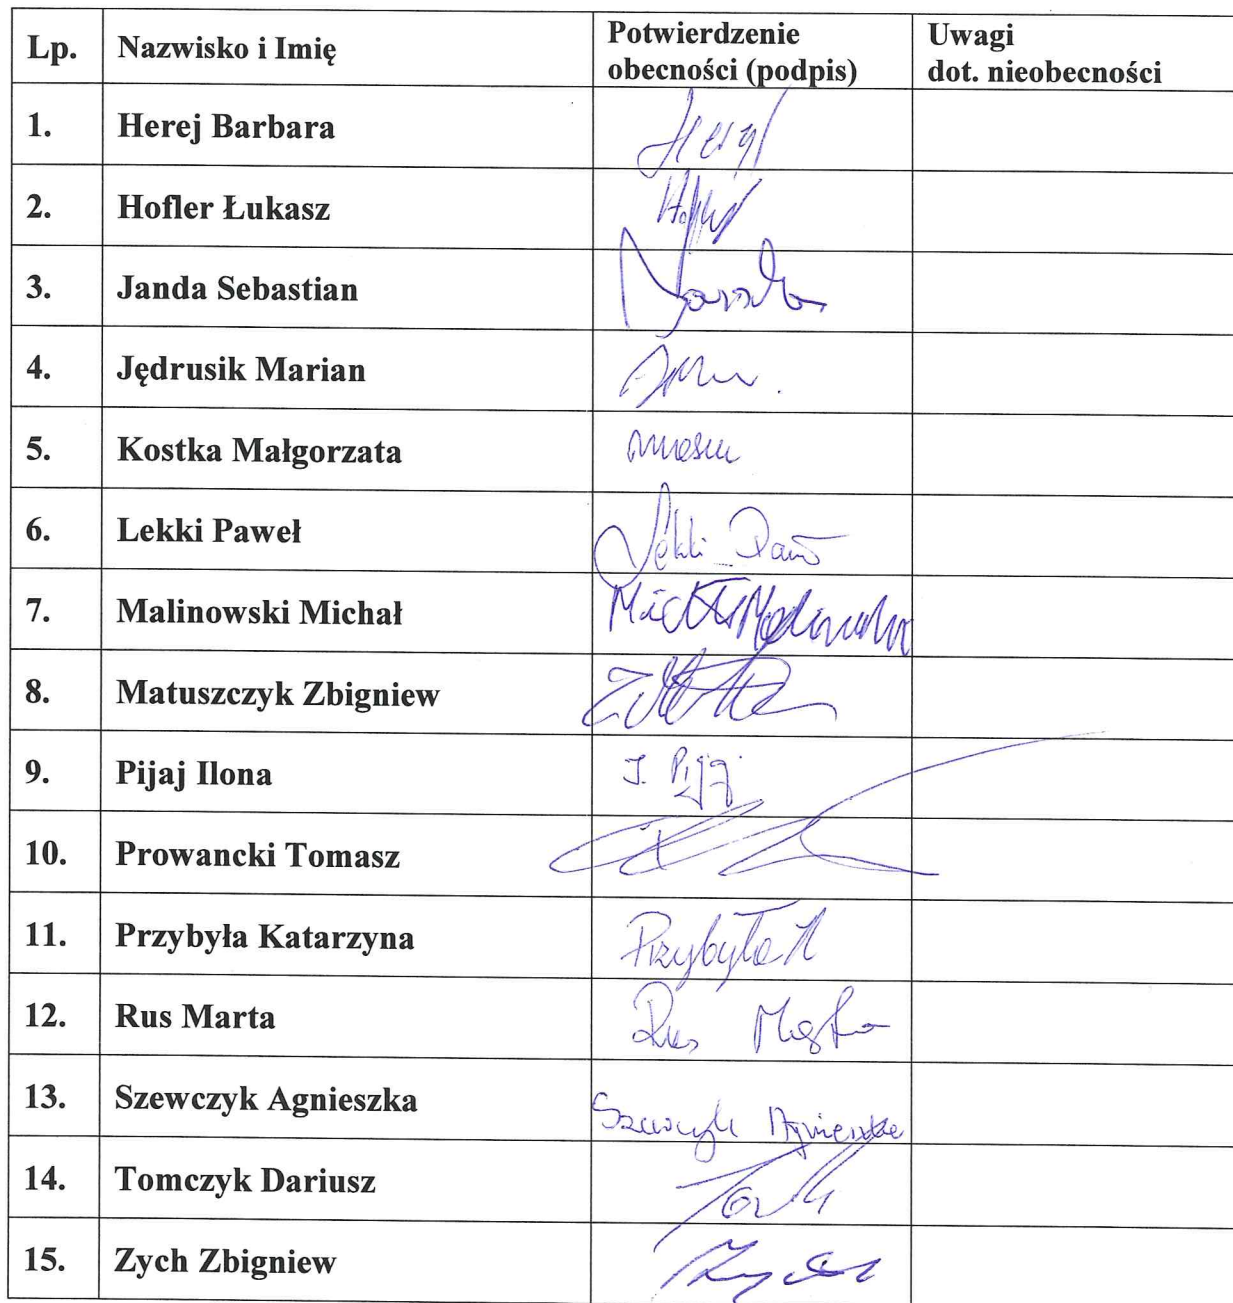 Lp. Nazwisko i Imię Potwierdzenie obecności (podpis) Uwagi dot. nieobecności
1. Herej Barbara Herej
2. Hofler Łukasz
3. Janda Sebastian Janda
4. Jędrusik Marian
5. Kostka Małgorzata
6. Lekki Paweł Lekki Paweł
7. Malinowski Michał Michał Malinowski
8. Matuszczyk Zbigniew
9. Pijaj Ilona I. Pijaj
10. Prowancki Tomasz
11. Przybyła Katarzyna Przybyła K
12. Rus Marta Rus Marta
13. Szewczyk Agnieszka Szewczyk Agnieszka
14. Tomczyk Dariusz
15. Zych Zbigniew Zych